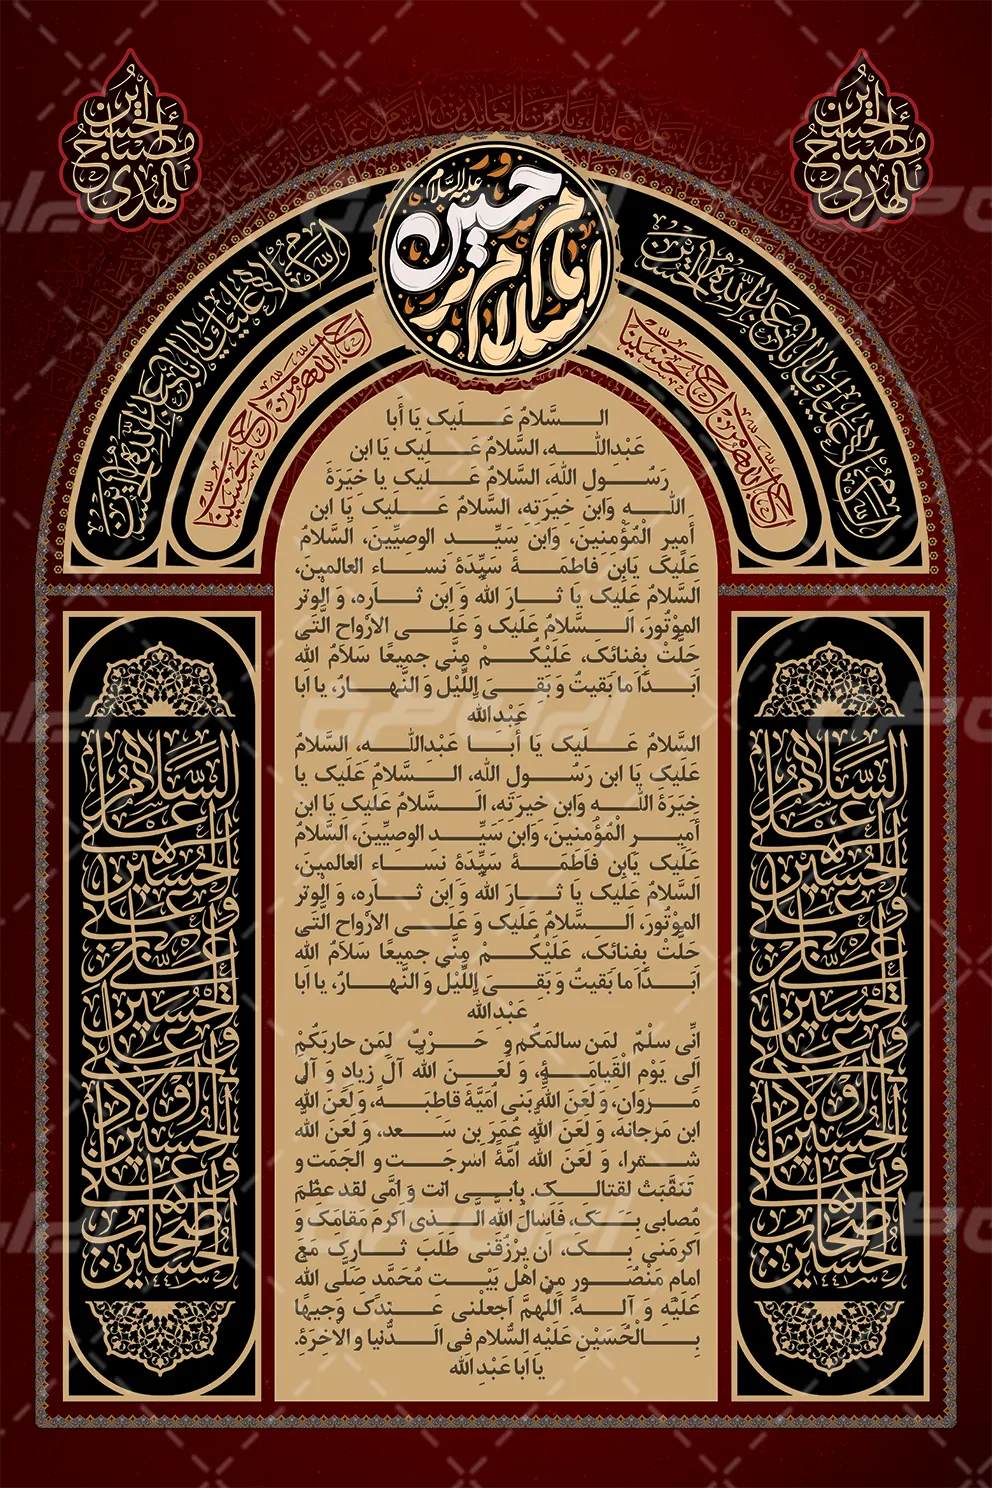 إن الحسين مصباح الهدى
إن الحسين مصباح الهدى
سلام بر امام حسین علیه السلام
السلام علیک یا اباعبدالله الحسین
السلام علیک یا اباعبدالله الحسین
احب الله من احب حسینا
احب الله من احب حسینا
السَّلامُ عَـلَیک یَا أَبا
عَبْداللـه، السَّلامُ عَـلَیک یَا ابن
رَسُـول اللهَ، السَّلامُ عَـلَیک یا خِیَرَةَ
اللـهِ وَابن خیرَته، السَّلامُ عَـلَیک یَا ابن
أَمیر الْمُؤْمنینَ، وَابنَ سَیِّـد الوصِیِّینَ، السَّلامُ
عَلَیکَ یَابنَ فاطمَـةَ سَیِّدَةَ نسـاء العالمینَ،
اَلسَّلامُ عَلَیک یَا ثـارَ الله وَ ابَن ثـاره، وَ الْوتر
المَوْتُورَ، اَلـسَّلامُ عَلَیک وَ عَلَـی الاَرْواح الَّتی
حَلَّتْ بِفنائکَ، عَلَیْکُـمْ مِنّی جمیعًا سَلاَمُ الله
اَبـدًا ما بَقیتُ وَ بَقِـیَ اللَّیْلُ وَ النَّهـارُ، یا اَبا
عَبْد الله
السَّلامُ عَـلَیک یَا أَبـا عَبْدِاللـه، السَّلامُ
عَلَیک یَا ابن رَسُـول الله، السَّلامُ عَلَیک یا
خِیَرَةَ اللـهِ وَابن خیرَته، السَّلامُ عَلَیک یَا ابن
أَمیـر الْمُؤْمنینَ، وَابنَ سَیِّـد الوصِیِّینَ، السَّلامُ
عَلَیک یَابن فاطمَـةَ سَیِّدَةَ نسـاء العالمینَ،
اَلسَّلامُ عَلَیک یَا ثـارَ الله وَ ابَن ثـاره، وَ الْوتر
المَوْتُورَ، اَلـسَّلامُ عَلَیک وَ عَلَـی الاَرْواح الَّتی
حَلَّتْ بِفنائکَ، عَلَیْکُـمْ مِنّی جمیعًا سَلاَمُ الله
اَبـدًا ما بَقیتُ وَ بَقِـیَ اللَّیْلُ وَ النَّهـارُ، یا اَبا
عَبْد الله
انِّی سلْمٌ لمَن سالمَکُم وَ حَـرْبٌ لِمن حاربَکُمْ
اَلی یَوْم الْقیامَـة، وَ لَعَـنَ الله آلَ زیاد وَ آلَ
مَـروان، وَ لَعَنَ اللّٰه بَنی اُمَیَّةَ قاطبَـه، وَ لَعَنَ الله
ابن مَرجانه، وَ لَعَنَ الله عُمَرَ بن سَـعد، وَ لَعَنَ الله
شمْرا، وَ لَعَنَ الله اُمَّةً اَسْرجَـت و الجَمَت و
تَنَقَّبَتْ لقتالـک. بابـی انت وَ امّی لقد عظُمَ
مُصابی بِـکَ، فَاَسْالُ الله الَّـذی اکرمَ مَقامَک وَ
اکرمَنی بـک، اَن یرْزُقَنی طَلَبَ ثـارِکَ مَعَ
امام مَنْصُـور مِن اهْل بَیْـت مُحَمَّد صَلَّی الله
عَلَیْهِ وَ آلـه. اَللّهمَّ اجعلْنی عَـنِدَکَ وَجیهًا
بـالْحُسَیْن عَلَیْه السَّلام فی الـدُّنیا و الاخِرَة.
یا اَبا عَبْد الله
السَّلَامُ
عَلَى
الْحُسَيْنِ
وَ عَلَى
عَلِيِّ بْنِ
الْحُسَيْنِ
وَ عَلَى
أَوْلَادِ
الْحُسَيْنِ
وَ عَلَى
أَصْحَابِ
الْحُسَيْنِ
١٤٤١
السَّلَامُ
عَلَى
الْحُسَيْنِ
وَ عَلَى
عَلِيِّ بْنِ
الْحُسَيْنِ
وَ عَلَى
أَوْلَادِ
الْحُسَيْنِ
وَ عَلَى
أَصْحَابِ
الْحُسَيْنِ
١٤٤١